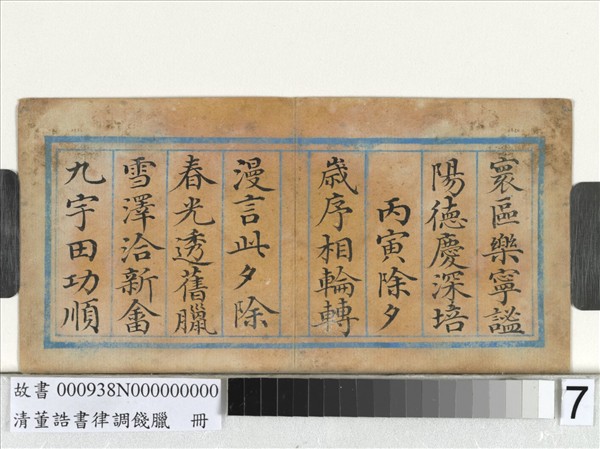 寰區樂寧謐
陽德慶深培
丙寅除夕
歲序相輪轉
漫言此夕除
春光透舊臘
雪澤洽新畬
九宇田功順
故書 000938N000000000
清董誥書律調餞臘 冊
7